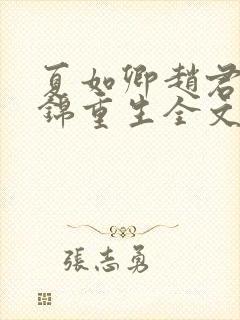 夏如卿趙君
錦重生全文
張志勇